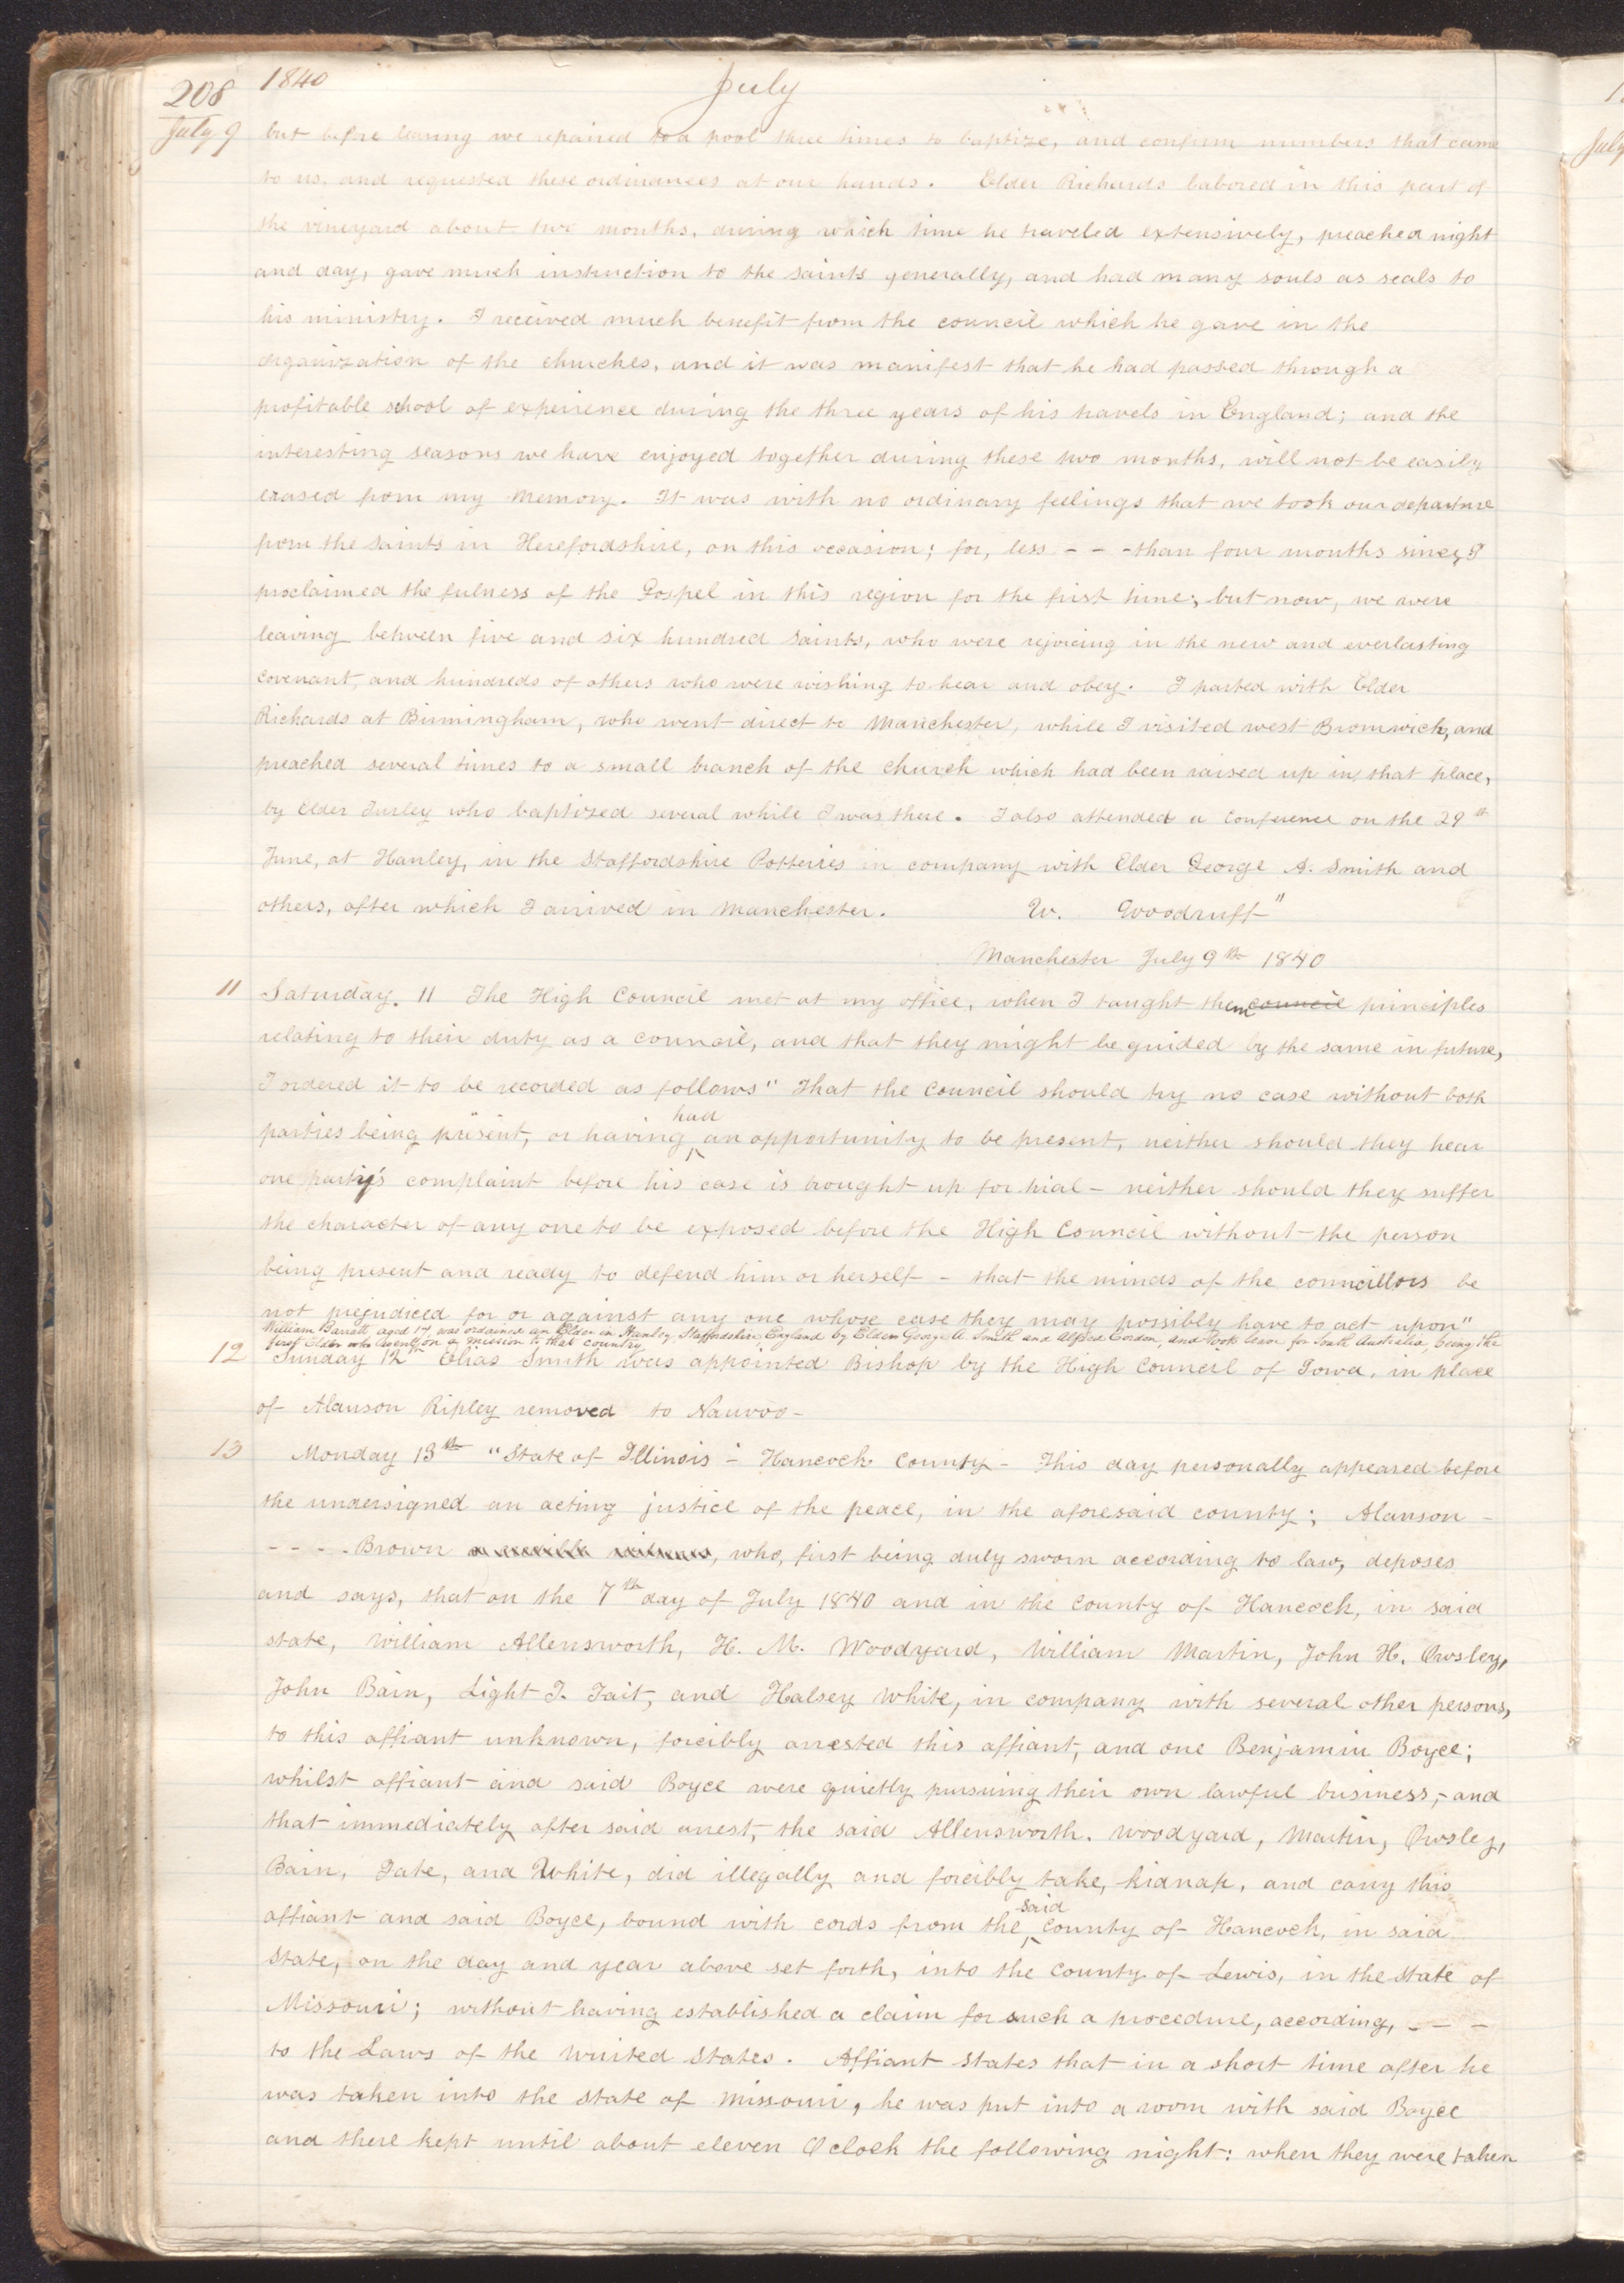 208 1840 July
July 9 but before leaving we repaired to a pool three times to baptize, and confirm numbers that came
to us, and requested these ordinances at our hands. Elder Richards labored in this part of
the vineyard about two months, during which time he traveled extensively, preached night
and day, gave much instruction to the saints generally, and had many souls as seals to
his ministry. I received much benefit from the council which he gave in the
organization of the churches, and it was manifest that he had passed through a
profitable school of experience during the three years of his travels in England; and the
interesting seasons we have enjoyed together during these two months, will not be easily
erased from my memory. It was with no ordinary feelings that we took our departure
from the saints in Herefordshire, on this occasion; for, less - - - than four months since, I
proclaimed the fulness of the Gospel in this region for the first time; but now, we were
leaving between five and six hundred saints, who were rejoicing in the new and everlasting
covenant, and hundreds of others who were wishing to hear and obey. I parted with Elder
Richards at Birmingham, who went direct to Manchester, while I visited west Bromwich, and
preached several times to a small branch of the church which had been raised up in that place,
by Elder Turley who baptized several while I was there. I also attended a conference on the 29th
June, at Hanley, in the Staffordshire Potteries in company with Elder George A. Smith and
others, after which I arrived in Manchester. W. Woodruff"
Manchester July 9th 1840
11 Saturday. 11 The High Council met at my office, when I taught them council principles
relating to their duty as a council, and that they might be guided by the same in future,
I ordered it to be recorded as follows "That the council should try no case without both
parties being present, or having had an opportunity to be present, neither should they hear
one party's complaint before his case is brought up for trial - neither should they suffer
the character of any one to be exposed before the High Council without the person
being present and ready to defend him or herself - that the minds of the councillors be
not prejudiced for or against any one whose case they may possibly have to act upon"
William Barratt aged 17 was ordained an Elder in Hanley Staffordshire England by Elders George A. Smith and Alfred Cordon, and took leave for South Australia, being the
first Elder who went on a mission to that country
12 Sunday 12th Elias Smith was appointed Bishop by the High Council of Iowa, in place
of Alanson Ripley removed to Nauvoo -
13 Monday 13th "State of Illinois - Hancock County - This day personally appeared before
the undersigned an acting justice of the peace, in the aforesaid county; Alanson -
- - - - Brown a credible witness, who, first being duly sworn according to law, deposes
and says, that on the 7th day of July 1840 and in the county of Hancock, in said
state, William Allensworth, H. M. Woodyard, William Martin, John H. Owsley,
John Bain, Light T. Tait, and Halsey White, in company with several other persons,
to this affiant unknown, forcibly arrested this affiant, and one Benjamin Boyce;
whilst affiant and said Boyce were quietly pursuing their own lawful business, - and
that immediately after said arrest, the said Allensworth. Woodyard, Martin, Owsley,
Bain, Tate, and White, did illegally and forcibly take, kidnap, and carry this
affiant and said Boyce, bound with cords from the said county of Hancock, in said
State, on the day and year above set forth, into the county of Lewis, in the State of
Missouri; without having established a claim for such a procedure, according, - - -
to the Laws of the United States. Affiant states that in a short time after he
was taken into the state of Missouri, he was put into a room with said Boyce
and there kept until about eleven O clock the following night: when they were taken
July